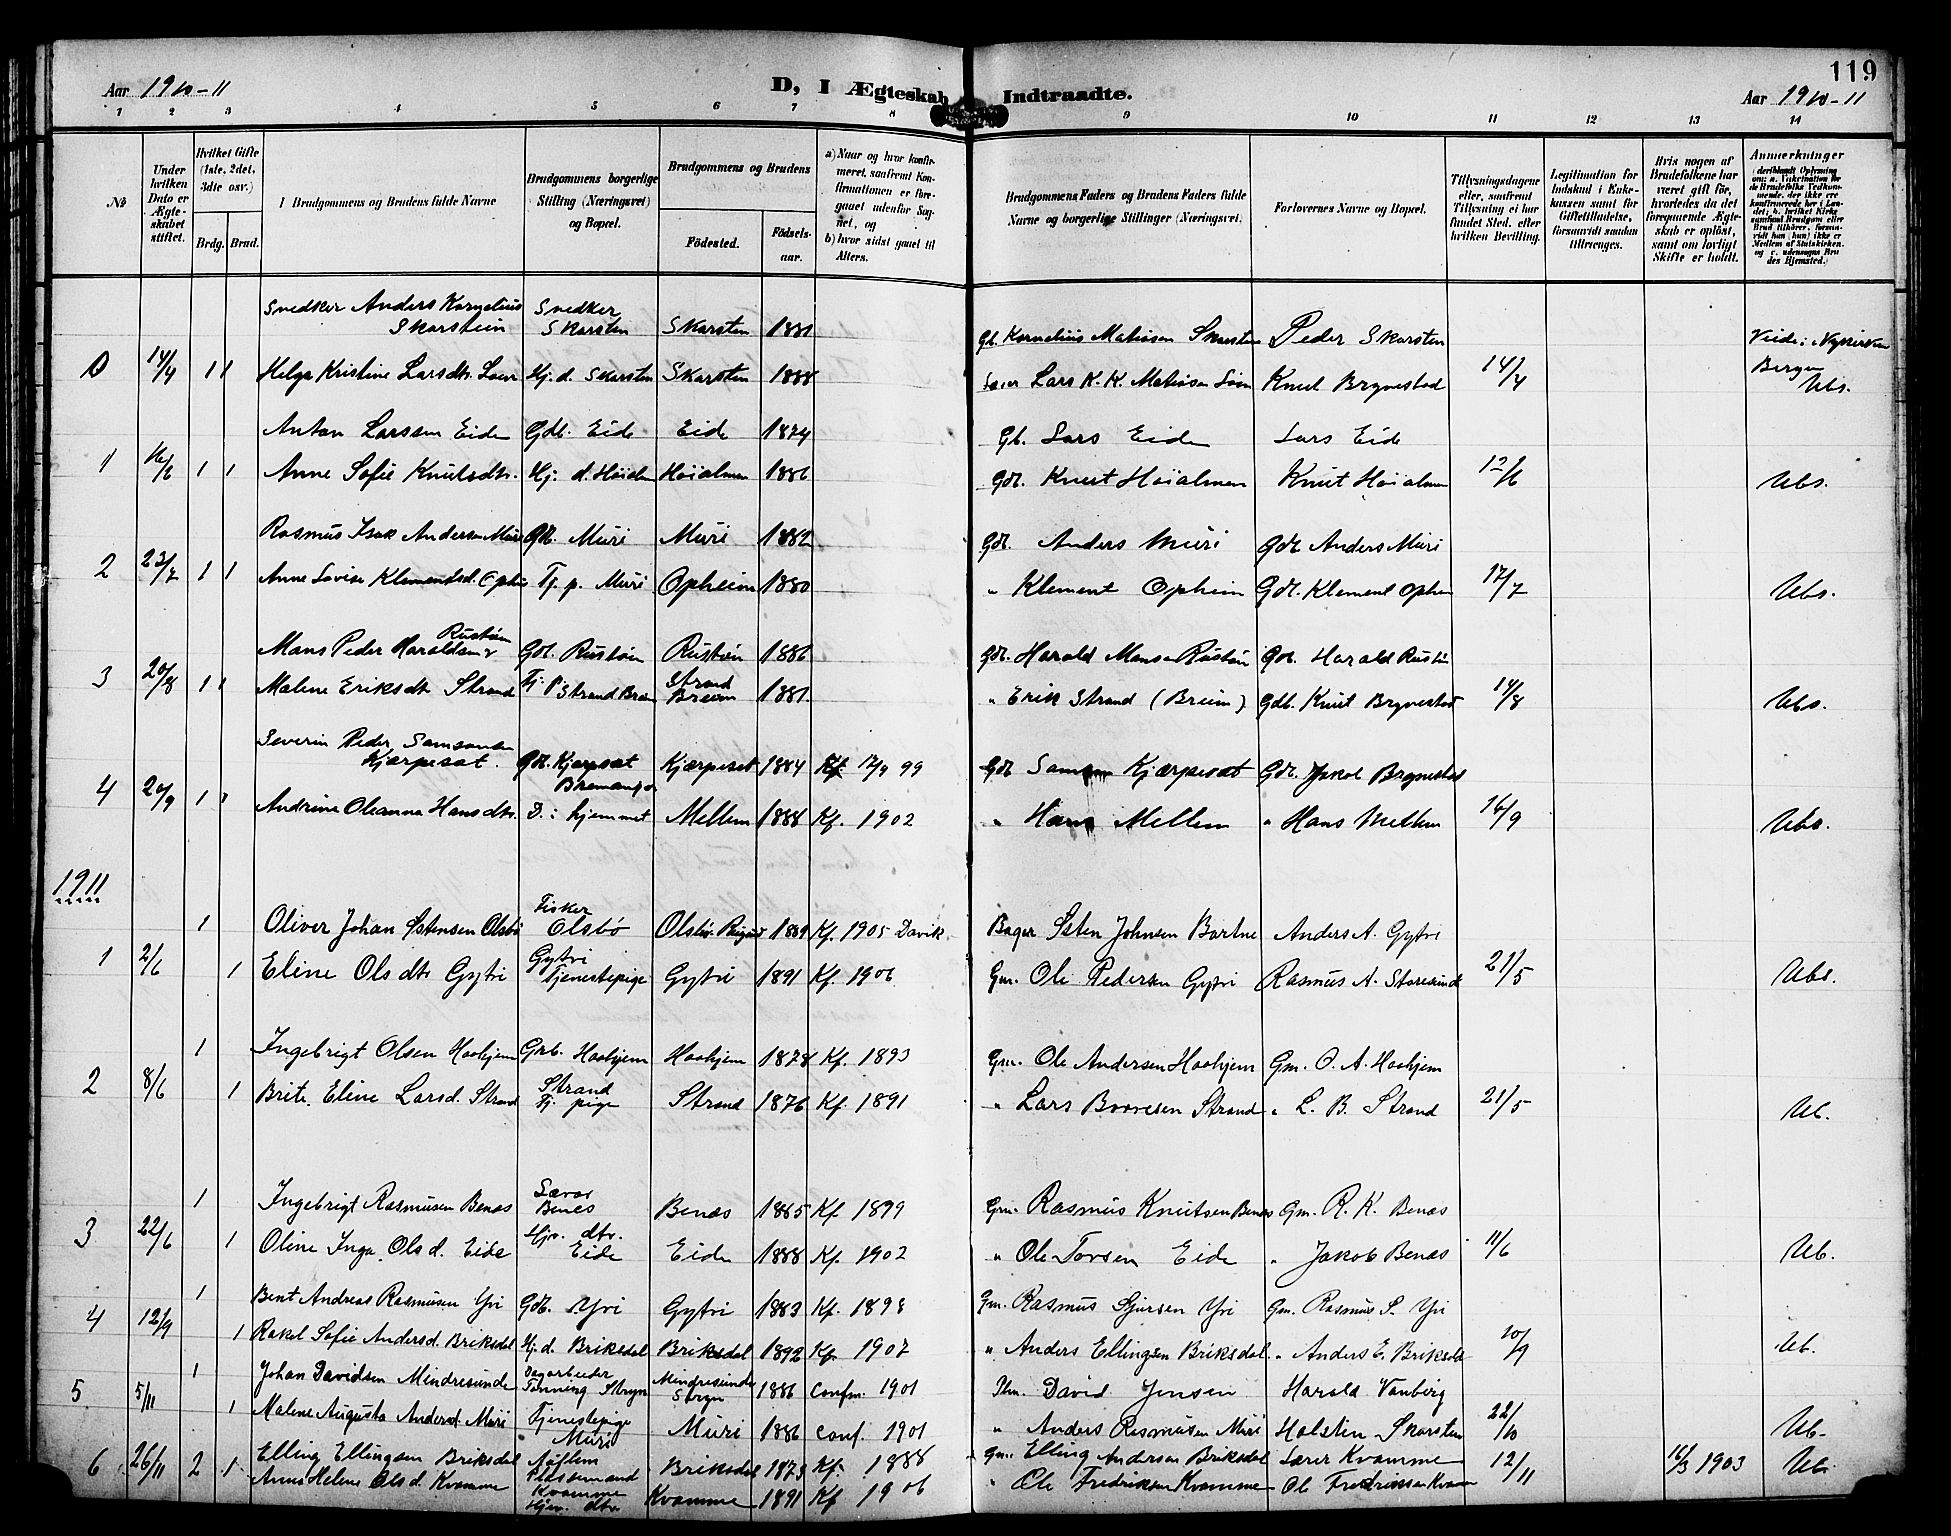 Aar 1910-11
D, I Ægteskab Indtraadte.
119
Aar 1910-11
1 2 3 4 5 6 7 8 9 10 11 12 13 14
No
Under hvilken Dato er Ægteskabet stiftet.
Hvilket Gifte (1ste, 2det, 3die osv.)
Brdg. Brud.
I Brudgommens og Brudens fulde Navne
Brudgommens borgerlige Stilling (Næringsvei) og Bopæl.
Brudgommens og Brudens
Fødested.
Fødselsaar.
a) Naar og hvor konfirmeret, samfremt Konfirmationen er foregaaet udenfor Sognet, og
b) hvor sidst gaaet til Alters.
Brudgommens Faders og Brudens Faders fulde Navne og borgerlige Stillinger (Næringsvei).
Forlovernes Navne og Bopæl.
Tillysningsdagene eller, samfremt Tillysning ei har fundet Sted, efter hvilken Bevilling.
Legitimation for Indskud i Enkekassen samt for Giftetilladelse, forsaavidt saadan tiltrænges.
Hvis nogen af Brudefolkene har været gift før, hvorledes da det foregaaende Ægteskab er opløst, samt om lovligt Skifte er holdt.
Anmærkninger
Snedker Anders Kornelius Skarstein Snedker Skarsten Skarsten 1881 Gb. Kornelius Matiasen Skarsten Peder Skarsten Viede i Nykirken
14/4 1 1 Helga Kristine Larsdtr. Loen Hj. d. Skarsten Skarsten 1888 Lars K. K. Matiasen Knut Brynestad 14/4 Bergen Ubs.
Anton Larssen Eide Gdb. Eide Eide 1874 Gb. Lars Eide Lars Eide
1 1 1 Anne Sofie Knutsdtr. Hj. d. Høialmen Høialmen 1886 Gdb. Knut Høialmen Knut Høialmen 12/6 Ubs.
Rasmus Isak Andersen Muri Gdb. Muri Muri 1882 Gdb. Anders Muri Gdb Anders Muri
2 23/7 1 1 Anne Lovise Klementsd. Opheim Tj. p. Muri Opheim 1880 " Klement Opheim Gdb. Klement Opheim 17/7 Ubs.
Mons Peder Haraldsen Rustøen Gdb. Rustøen Rustøen 1886 Gdb. Harald Monsen Rustøen Gdb. Harald Rustøen
3 20/8 1 1 Malene Eriksdtr Strand Tj. p. Strand Breim Strand Breim 1881 " Erik Strand (Breim) Gdb. Knut Brynestad 14/8 Ubs.
Severin Peder Samsonsen Kjærpeset. Gdb. Kjærpeset Bremanger Kjærpeset 1884 Kf. 17/9 99 Gdb Samson Kjærpeset Gdb. Jakob Brynestad
4 20/9 1 Andrine Oleanna Hansdtr. D. i hjemmet Mellem 1888 Kf. 1902 " Hans Mellem " Hans Mellem 16/9 Ubs.
1911
1 Oliver Johan Sstensen Olsbø Fisker Olsbø Olsbø 1889 Kf. 1905 Davik Bager Ssten Johnsen Bortne Anders A. Gytri
1 2/6 1 Eline Olsdtr Gytri Gytri Tjenestepige Gytri 1891 Kf. 1906 Gm. Ole Pedersen Gytri Rasmus A. Storesund 21/5 Ubs.
1 Ingebrigt Olsen Haahjem Grb. Haahjem Haahjem 1878 Kf. 1893 Gm. Ole Andersen Haahjem Gm. O. A. Haahjem
2 8/6 1 Brite Eline Larsd. Strand Strand Tj. pige Strand 1876 Kf. 1891 " Lars Strand " L. B. Strand 21/5 Ub.
1 Ingebrigt Rasmusen Benæs Benes Benæs 1885 Kf. 1899 Gm. Rasmus Knutsen Benæs Gm. R. K. Benæs
3 22/6 1 Oline Inga Olsd. Eide Hjv. dtr. Eide Eide 1888 Kf. 1902 " Ole Torsen Eide " Jakob Benæs 11/6 Ub.
1 Bent Andreas Rasmusen Yri Gdb. Yri Gytri 1883 Kf. 1898 Gm. Rasmus Sjursen Yri Gm. Rasmus S. Yri
4 12/9 1 Rakel Sofie Andersd. Briksdal Hj. d. Briksdal Briksdal 1892 Kf. 1907 " Anders Ellingsen Briksdal " Anders E. Briksdal 10/9 Ub.
1 Johan Davidsen Mindresunde Dagarbeider Tonning Stryn Mindresunde Stryn 1886 Confm. 1901 Plm. David Jensen Harald Vanberg
5 5/11 1 Malene Augusta Andersd Muri Tjenestepige Muri Muri 1886 Conf. 1901 " Anders Rasmusen Muri Holsten Skarsten 22/10 Ub.
6 26/11 2 1 Elling Ellingsen Briksdal Aaflem Plassemand Briksdal 1873 Kf. 1888 Gm. Elling Andersen Briksdal Lærer Kvamme 12/11 16/3 1903 Ub.
Anne Helene Olsd. Kvamme Kvamme Hjv. dtr Kvamme 1891 Kf 1906 " Ole Fredriksen Kvamme Ole Fredriksen Kvamme